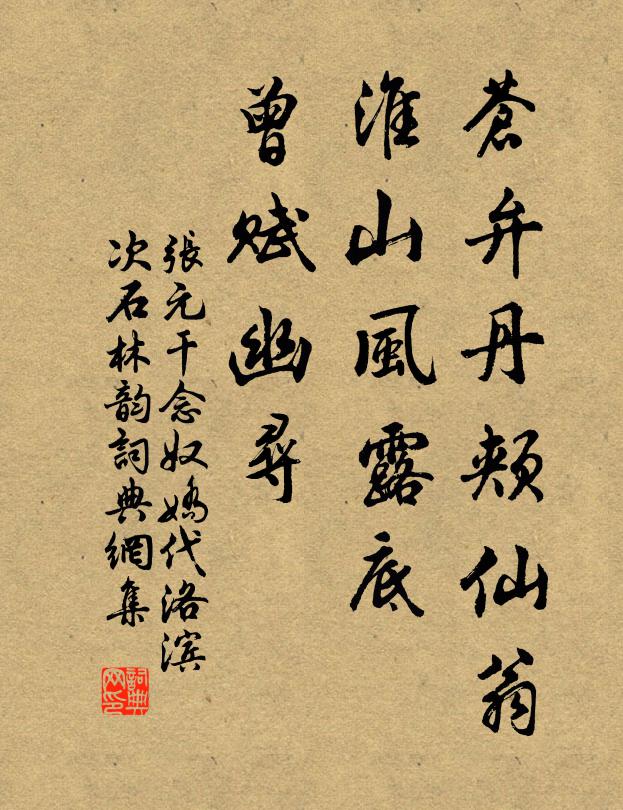 蒼弁丹頰仙翁
淮山風露底
曾賦幽尋
張元干念奴嬌代洛滨
次石林韵詞典網集
詞典
网印